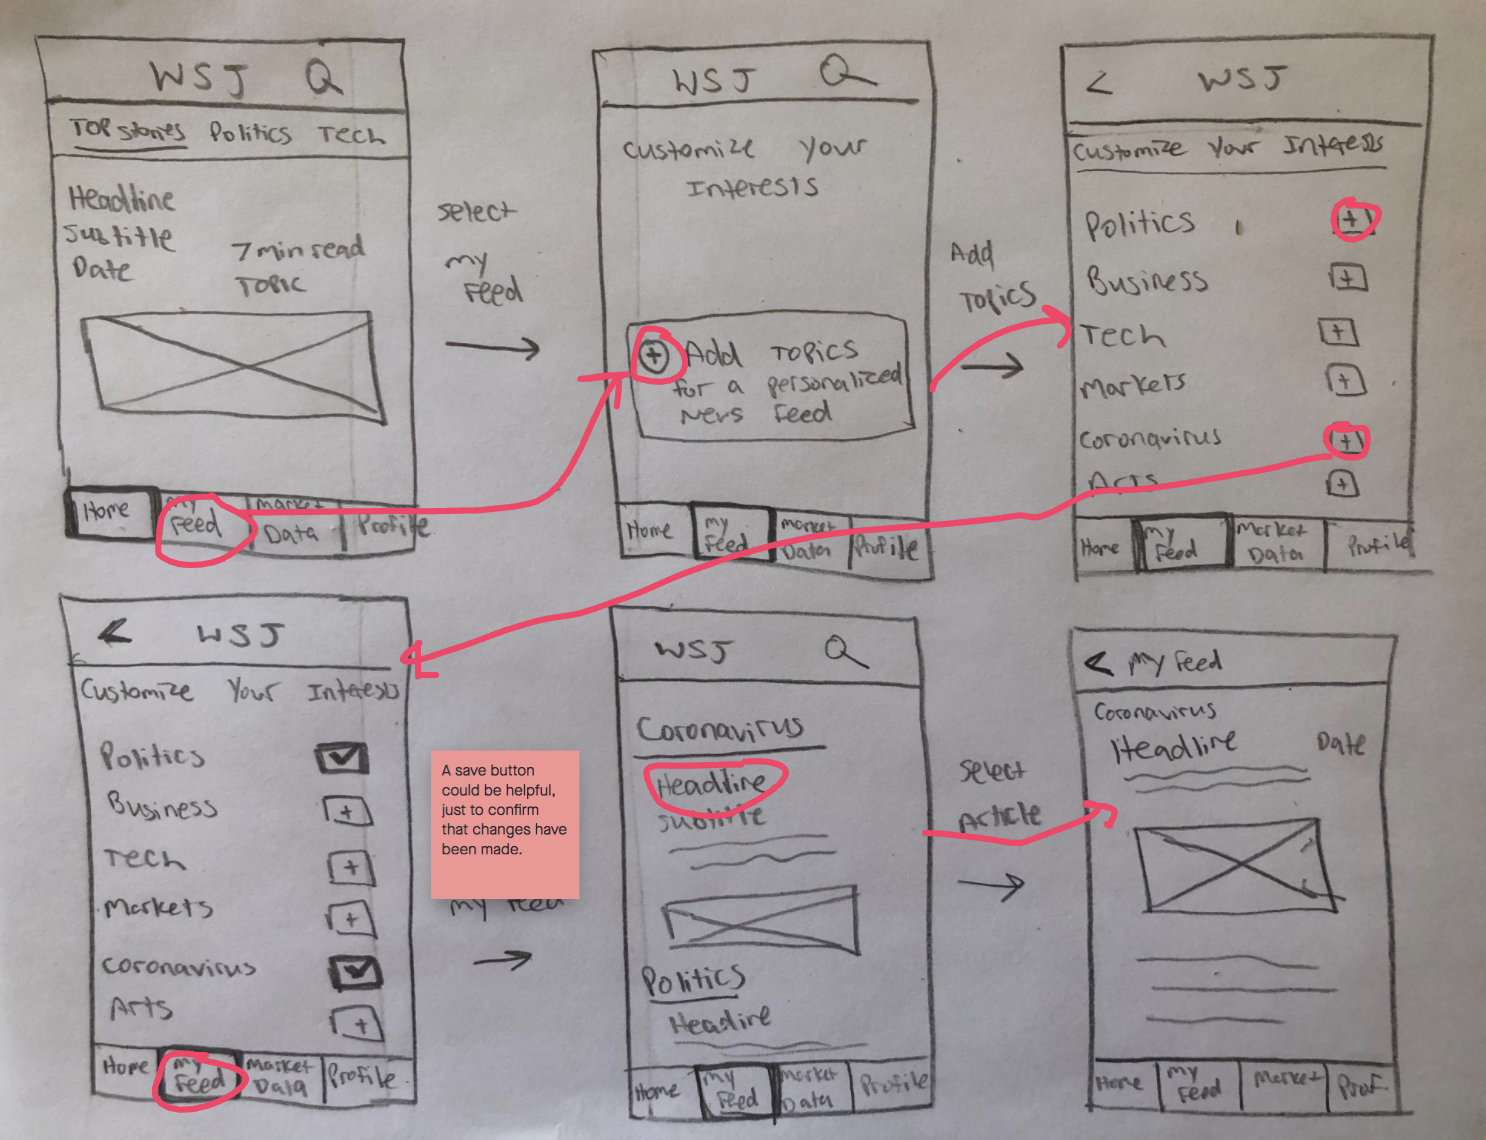 WSJ
Top Stories Politics Tech
Headline
Subtitle
Date
7 min read
Topic
Home
my
Feed
market
Data
Profile
Select
my
Feed
WSJ
Customize Your
Interests
+ Add Topics
for a personalized
News Feed
Home
my
Feed
market
Data
Profile
Add
Topics
< WSJ
Customize Your Interests
Politics +
Business +
Tech +
Markets +
Coronavirus +
Arts +
Home
my
Feed
market
Data
Profile
< WSJ
Customize Your Interests
Politics
Business +
Tech +
Markets +
Coronavirus
Arts +
Home
my
Feed
market
Data
Profile
A save button
could be helpful,
just to confirm
that changes have
been made.
my Feed
WSJ
Coronavirus
Headline
Subtitle
Politics
Headline
Home
my
Feed
market
Data
Profile
Select
Article
< my Feed
Coronavirus
Headline Date
Home
my
Feed
market
Prof.